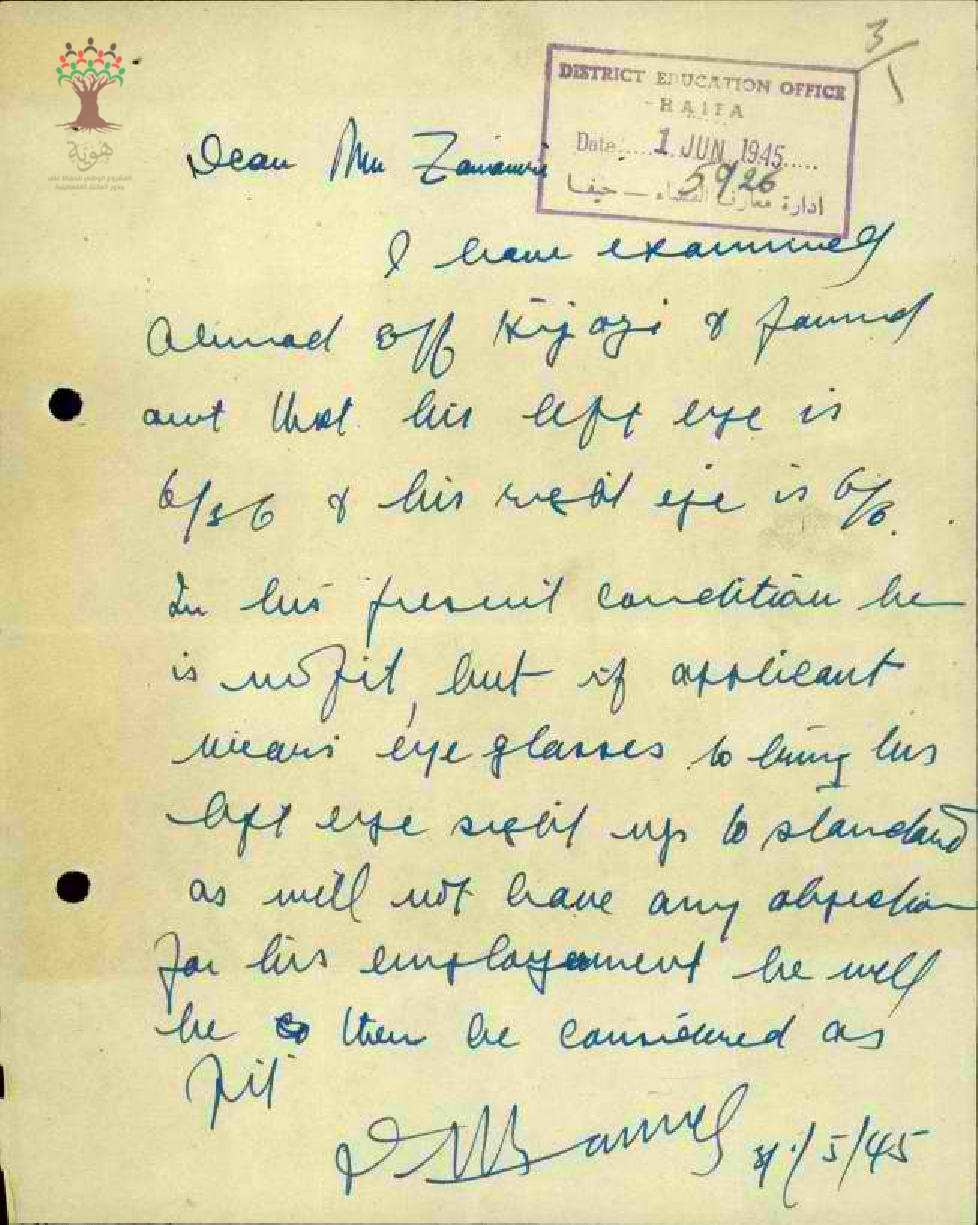 هوية
المشروع الوطني للحفاظ على
جذور العائلة الفلسطينية
3/1
DISTRICT EDUCATION OFFICE
HAIFA
Date 1 JUN 1945
5926
ادارة معارف القضاء — حيفا
Dear Mr
I have examined
Ahmad Eff Hijazi & found
out that his left eye is
6/36 & his right eye is 6/6.
In his present condition he
is not fit, but if applicant
wears eye glasses to bring his
left eye sight up to standard
as will not have any objection
for his employement he will
be then be considered as
fit
/5/45